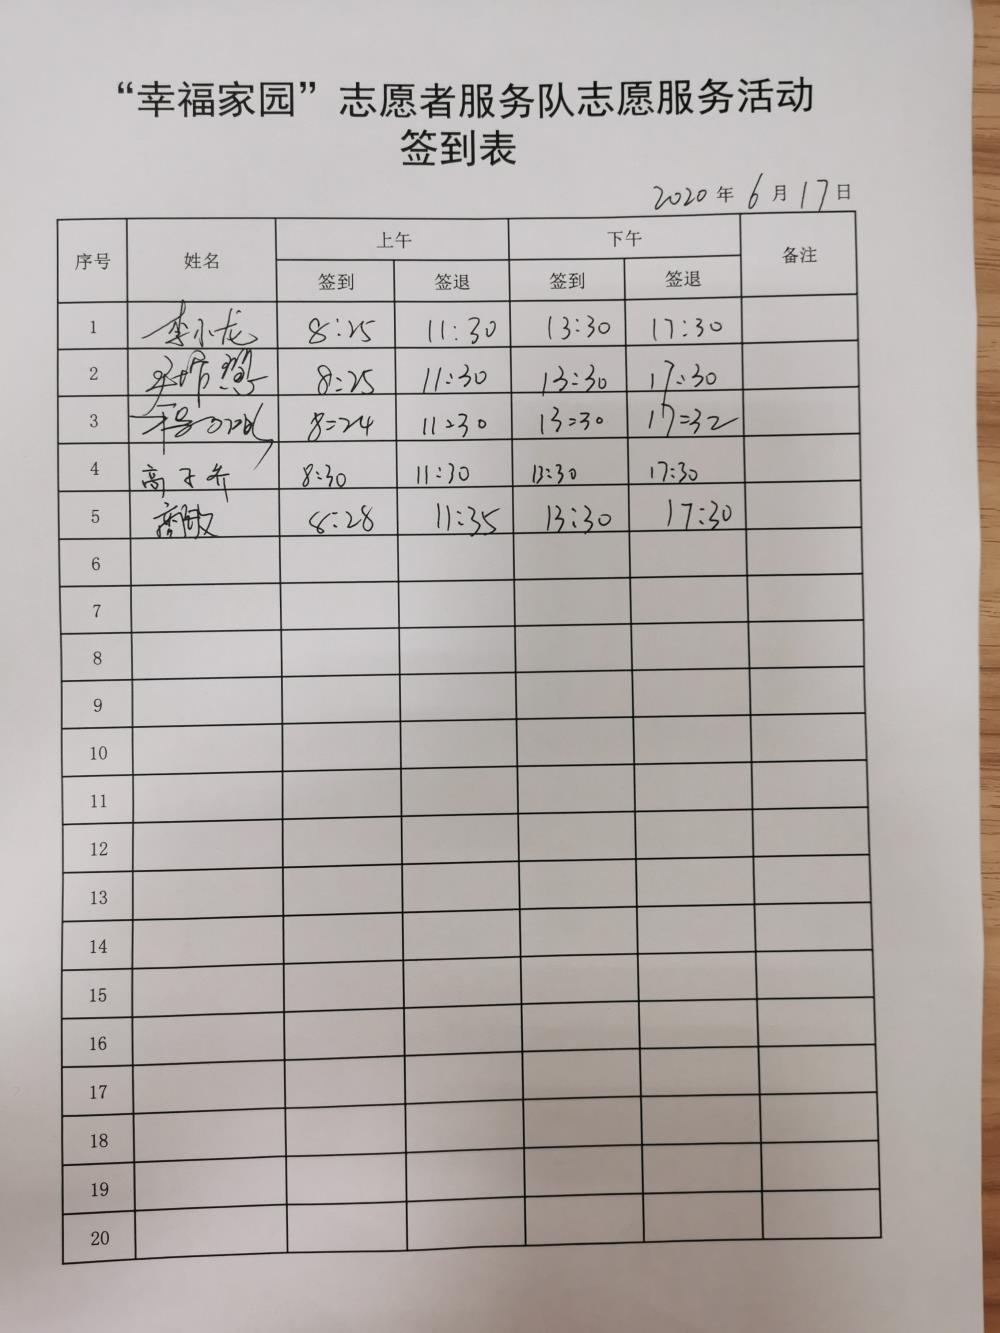 “幸福家园”志愿者服务队志愿服务活动
签到表
2020年6月17日
序号 姓名 上午 下午 备注
签到 签退 签到 签退
1 李小龙 8:25 11:30 13:30 17:30
2 8:25 11:30 13:30 17:30
3 8:24 11:30 13:30 17:32
4 高子乔 8:30 11:30 13:30 17:30
5 8:28 11:35 13:30 17:30
6
7
8
9
10
11
12
13
14
15
16
17
18
19
20